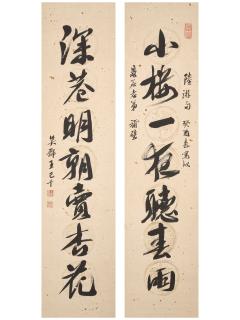 小楼一夜聽春雨
陸游句 癸酉春寫以
深巷明朝賣杏花
吳郡王己千